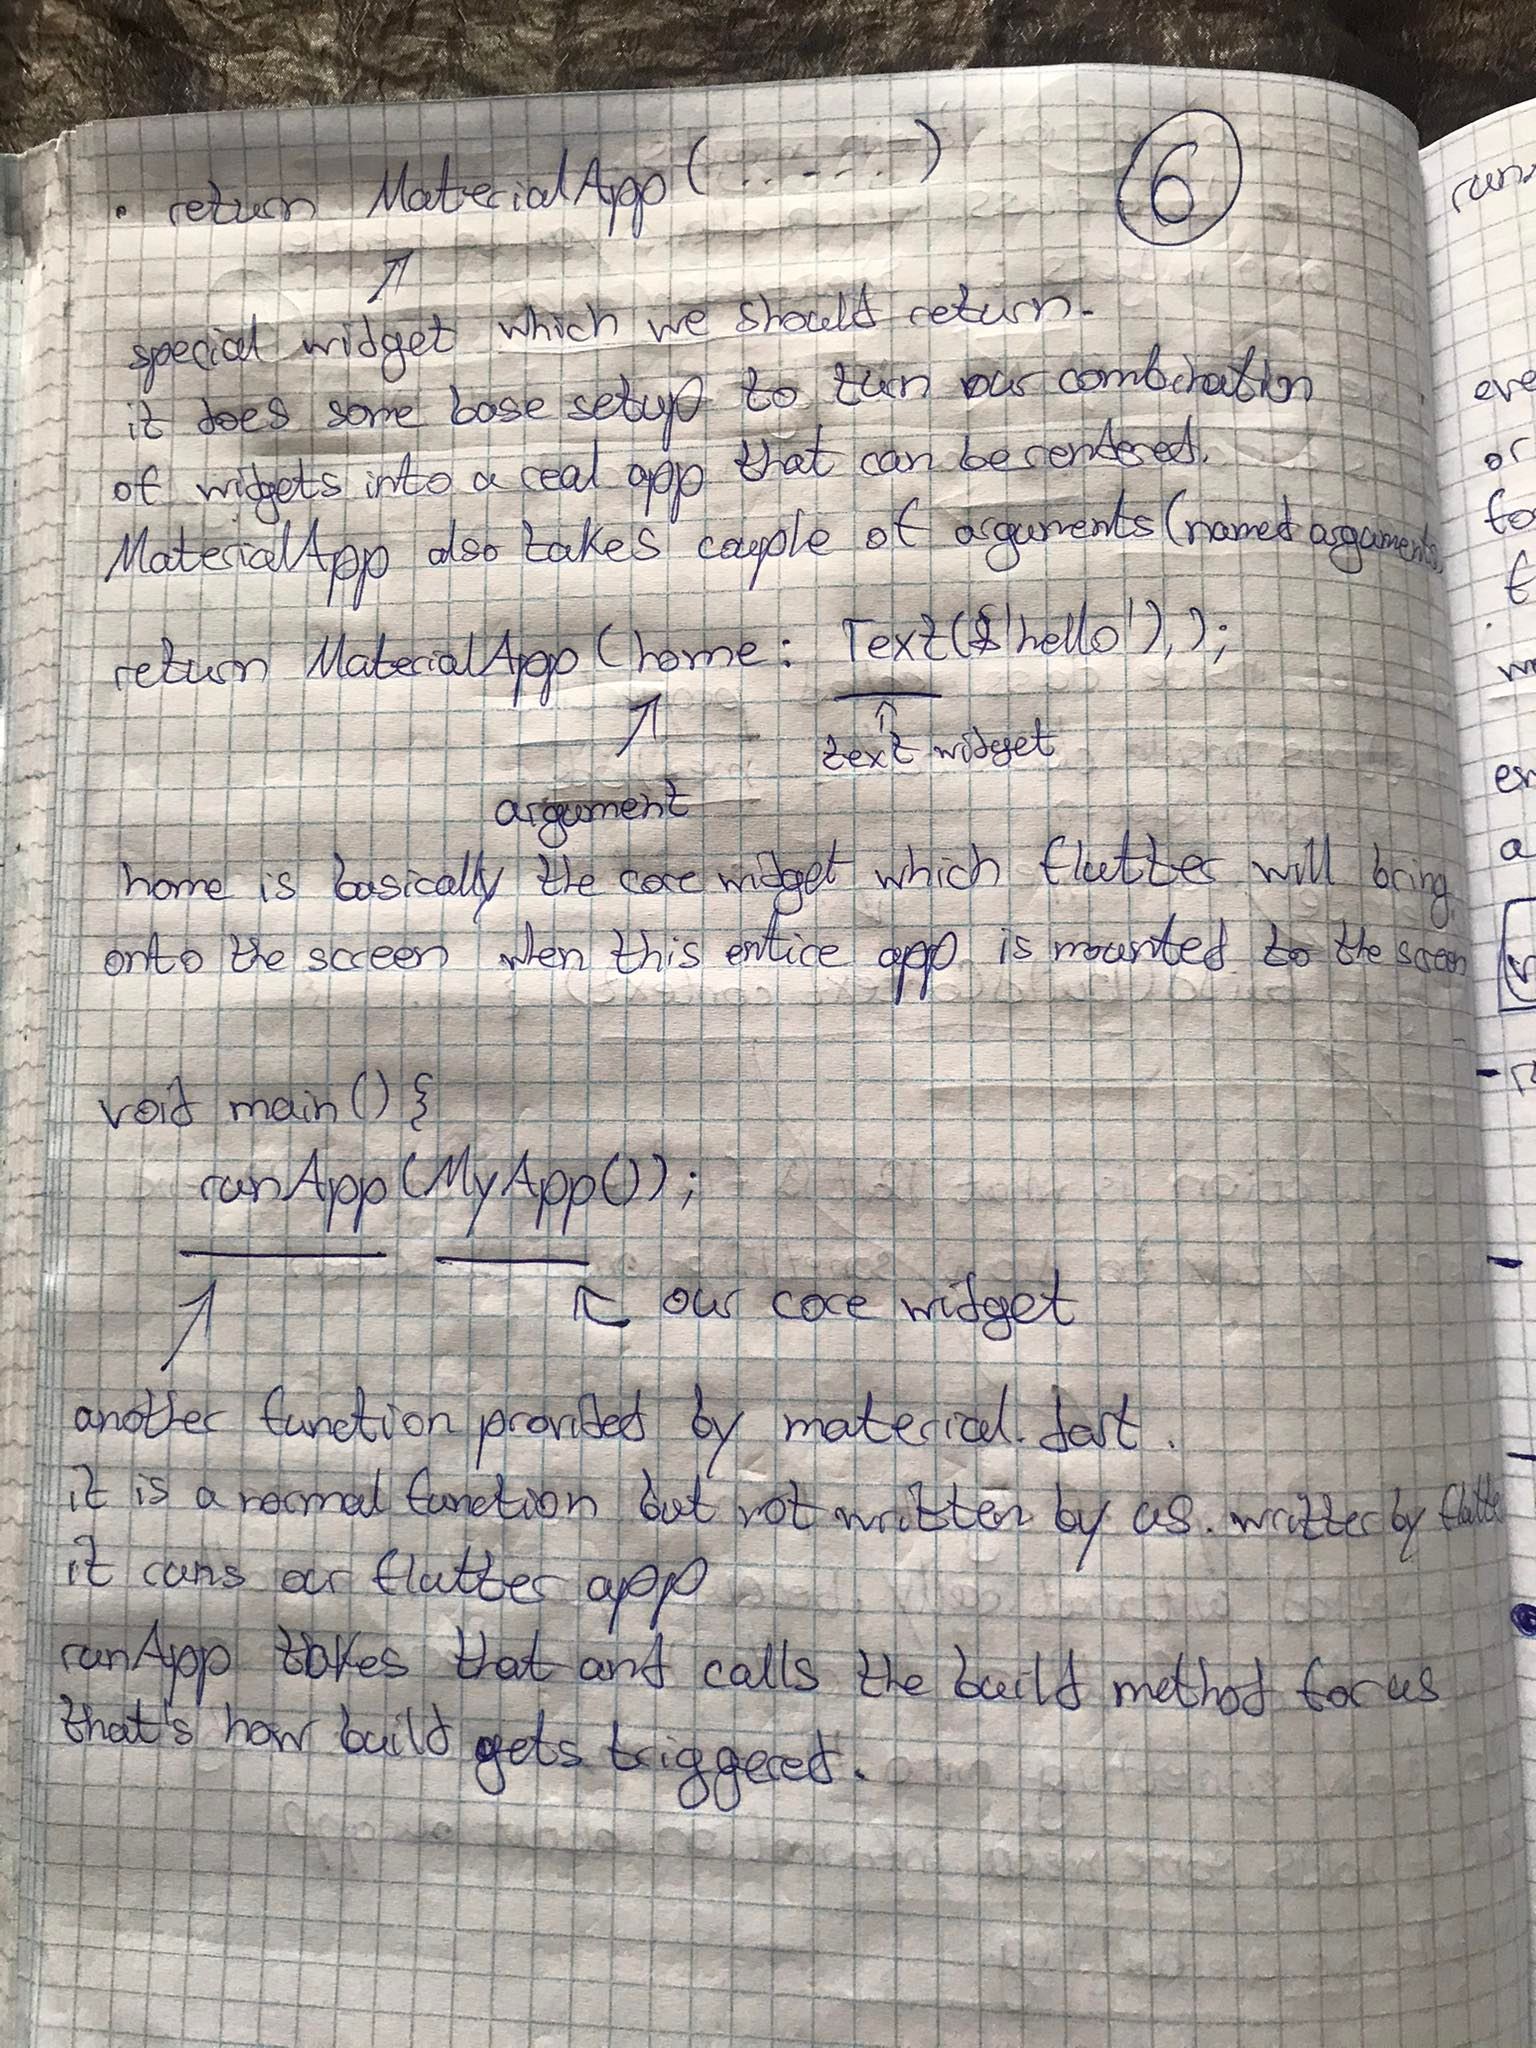 6
• return MaterialApp(........)
special widget which we should return.
it does some base setup to turn our combination
of widgets into a real app that can be rendered.
MaterialApp also takes couple of arguments (named arguments
return MaterialApp (home: Text('hello'),);
text widget
argument
home is basically the core widget which flutter will bring
onto the screen when this entire app is mounted to the screen
void main() {
runApp(MyApp());
our core widget
another function provided by material.dart.
it is a normal function but not written by us. written by flutter
it runs our flutter app
runApp takes that and calls the build method for us
that's how build gets triggered.
or
a